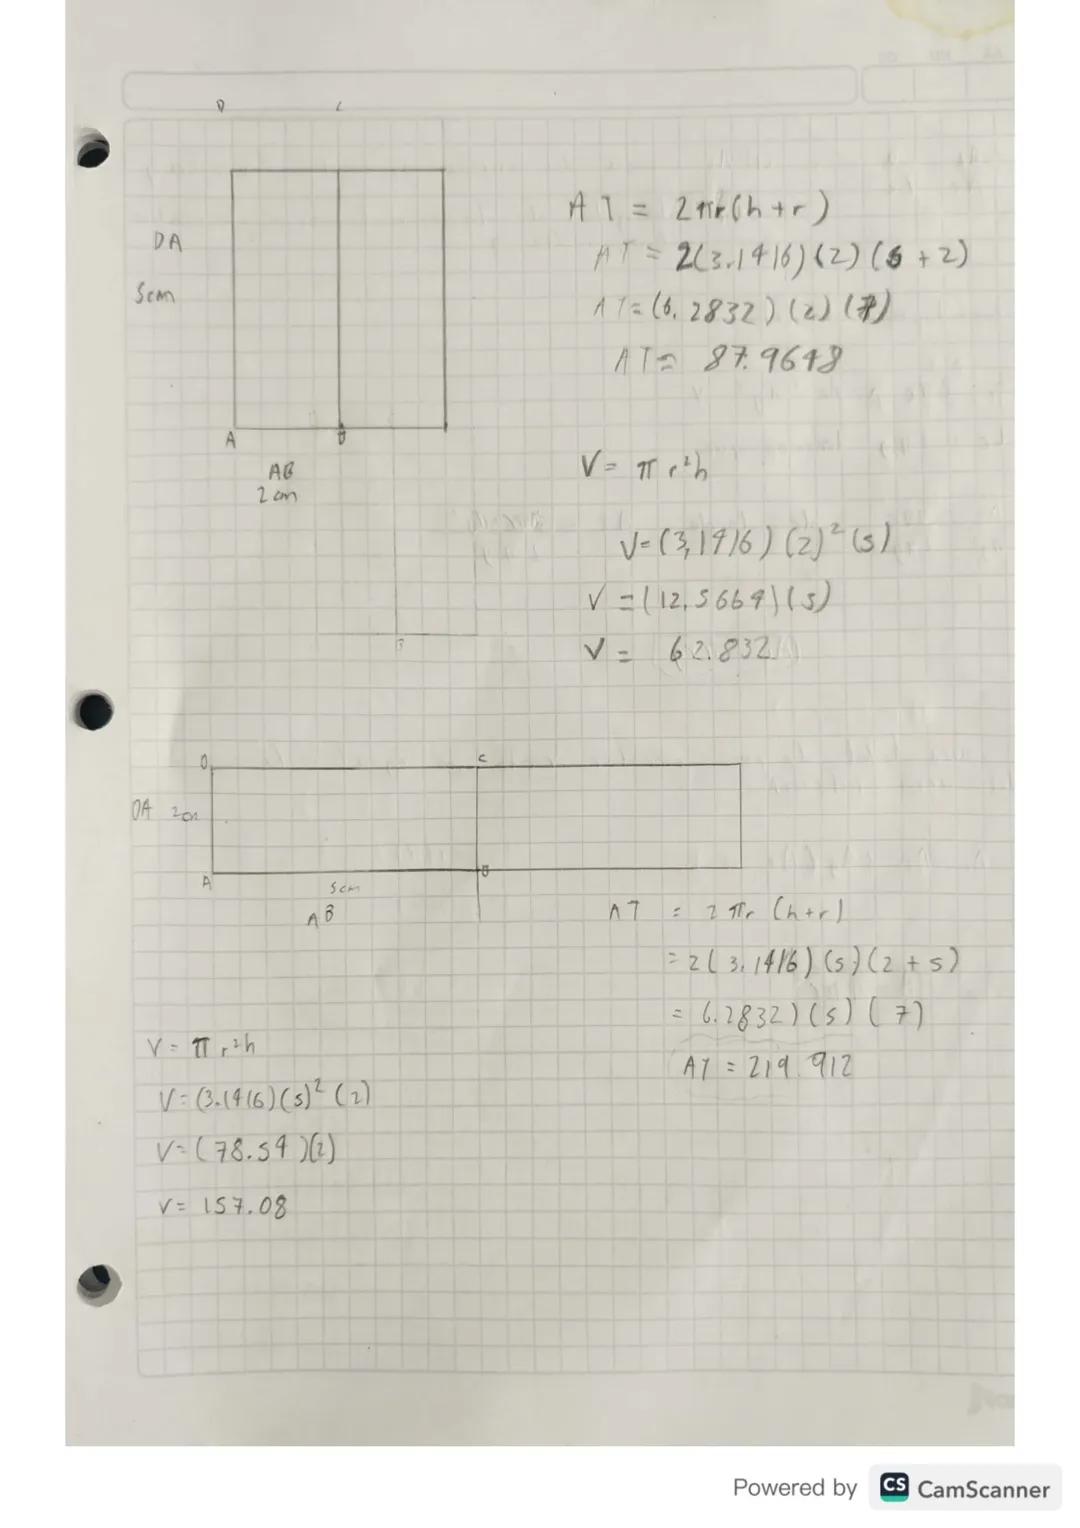 D C
DA
5cm
A B
AB
2 cm
AT = 2πr(h+r)
AT = 2(3.1416)(2)(5+2)
AT=(6.2832)(2)(7)
AT= 87.9648
V= π r²h
V=(3,1416)(2)²(5)
V=(12,5664)(5)
V= 62.832
B
D C
DA 2cm
A B
5cm
AB
AT = 2πr (h+r)
=2(3.1416)(5)(2+5)
= 6.2832)(5)(7)
AT = 219.912
V= π r²h
V=(3.1416)(5)²(2)
V=(78.54)(2)
V= 157.08
Powered by CS CamScanner